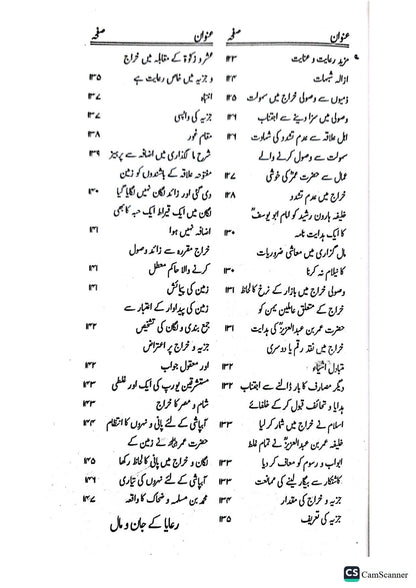 عنوان صفحہ
مزید رعایت و عنایت ۱۲۳
ازالہ شبہات ۱۲۴
ذمیوں سے وصولی خراج میں سہولت ۱۲۵
وصولی میں سزا دینے سے اجتناب ۱۲۶
اہل علاقہ سے عدم تشدد کی شہادت ۱۲۶
سہولت سے وصول کرنے والے
عمال سے حضرت عمرؓ کی خوشی ۱۲۷
خراج میں عدم تشدد ۱۲۸
خلیفہ ہارون رشید کو امام ابو یوسفؒ
کا ایک ہدایت نامہ ۱۳۰
مال گزاری میں معاشی ضروریات
کا نیلام نہ کرنا ۱۳۰
وصولی خراج میں بازار کے نرخ کا لحاظ ۱۳۱
خراج کے متعلق عاملین یمن کو
حضرت عمر بن عبدالعزیزؒ کی ہدایت ۱۳۱
خراج میں نقد رقم یا دوسری
متبادل اشیاء ۱۳۲
دیگر مصارف کا بار ڈالنے سے اجتناب ۱۳۲
ہدایا و تحائف قبول کر کے خلفائے
اسلام نے خراج میں شمار کر لیا ۱۳۳
خلیفہ عمر بن عبدالعزیزؒ نے تمام غلط
ابواب و رسوم کو معاف کر دیا ۱۳۳
کاشتکار سے بیگار لینے کی ممانعت ۱۳۳
جزیہ و خراج کی مقدار ۱۳۴
جزیہ کی تعریف ۱۳۵
عنوان صفحہ
عشر و زکوٰۃ کے مقابلہ میں خراج
و جزیہ میں خاص رعایت ہے ۱۳۵
انتباہ ۱۳۷
جزیہ کی واپسی ۱۳۷
مقام غور ۱۳۸
شرح مالگذاری میں اضافہ سے پرہیز ۱۳۹
مفتوحہ علاقہ کے باشندوں کو زمین
دی گئی اور زائد لگان نہیں لگایا گیا ۱۴۰
لگان میں ایک قیراط ایک حبہ کا بھی
اضافہ نہیں ہوا ۱۴۱
خراج مقررہ سے زائد وصول
کرنے والا حاکم معطل ۱۴۱
زمین کی پیمائش ۱۴۱
زمین کی پیداوار کے اعتبار سے
جمع بندی و لگان کی تشخیص ۱۴۲
جزیہ و خراج پر اعتراض
اور معقول جواب ۱۴۲
مستشرقین یورپ کی ایک اور غلطی ۱۴۳
شام و مصر کا خراج ۱۴۳
آبپاشی کے لئے پانی و نہروں کا انتظام ۱۴۴
حضرت عمرؓ نے زمین کے
لگان و خراج میں پانی کا لحاظ رکھا ۱۴۵
آبپاشی کے لئے نہروں کی تیاری ۱۴۶
محمد بن مسلمہ و ضحاک کا واقعہ ۱۴۷
رعایا کے جان و مال
CS CamScanner